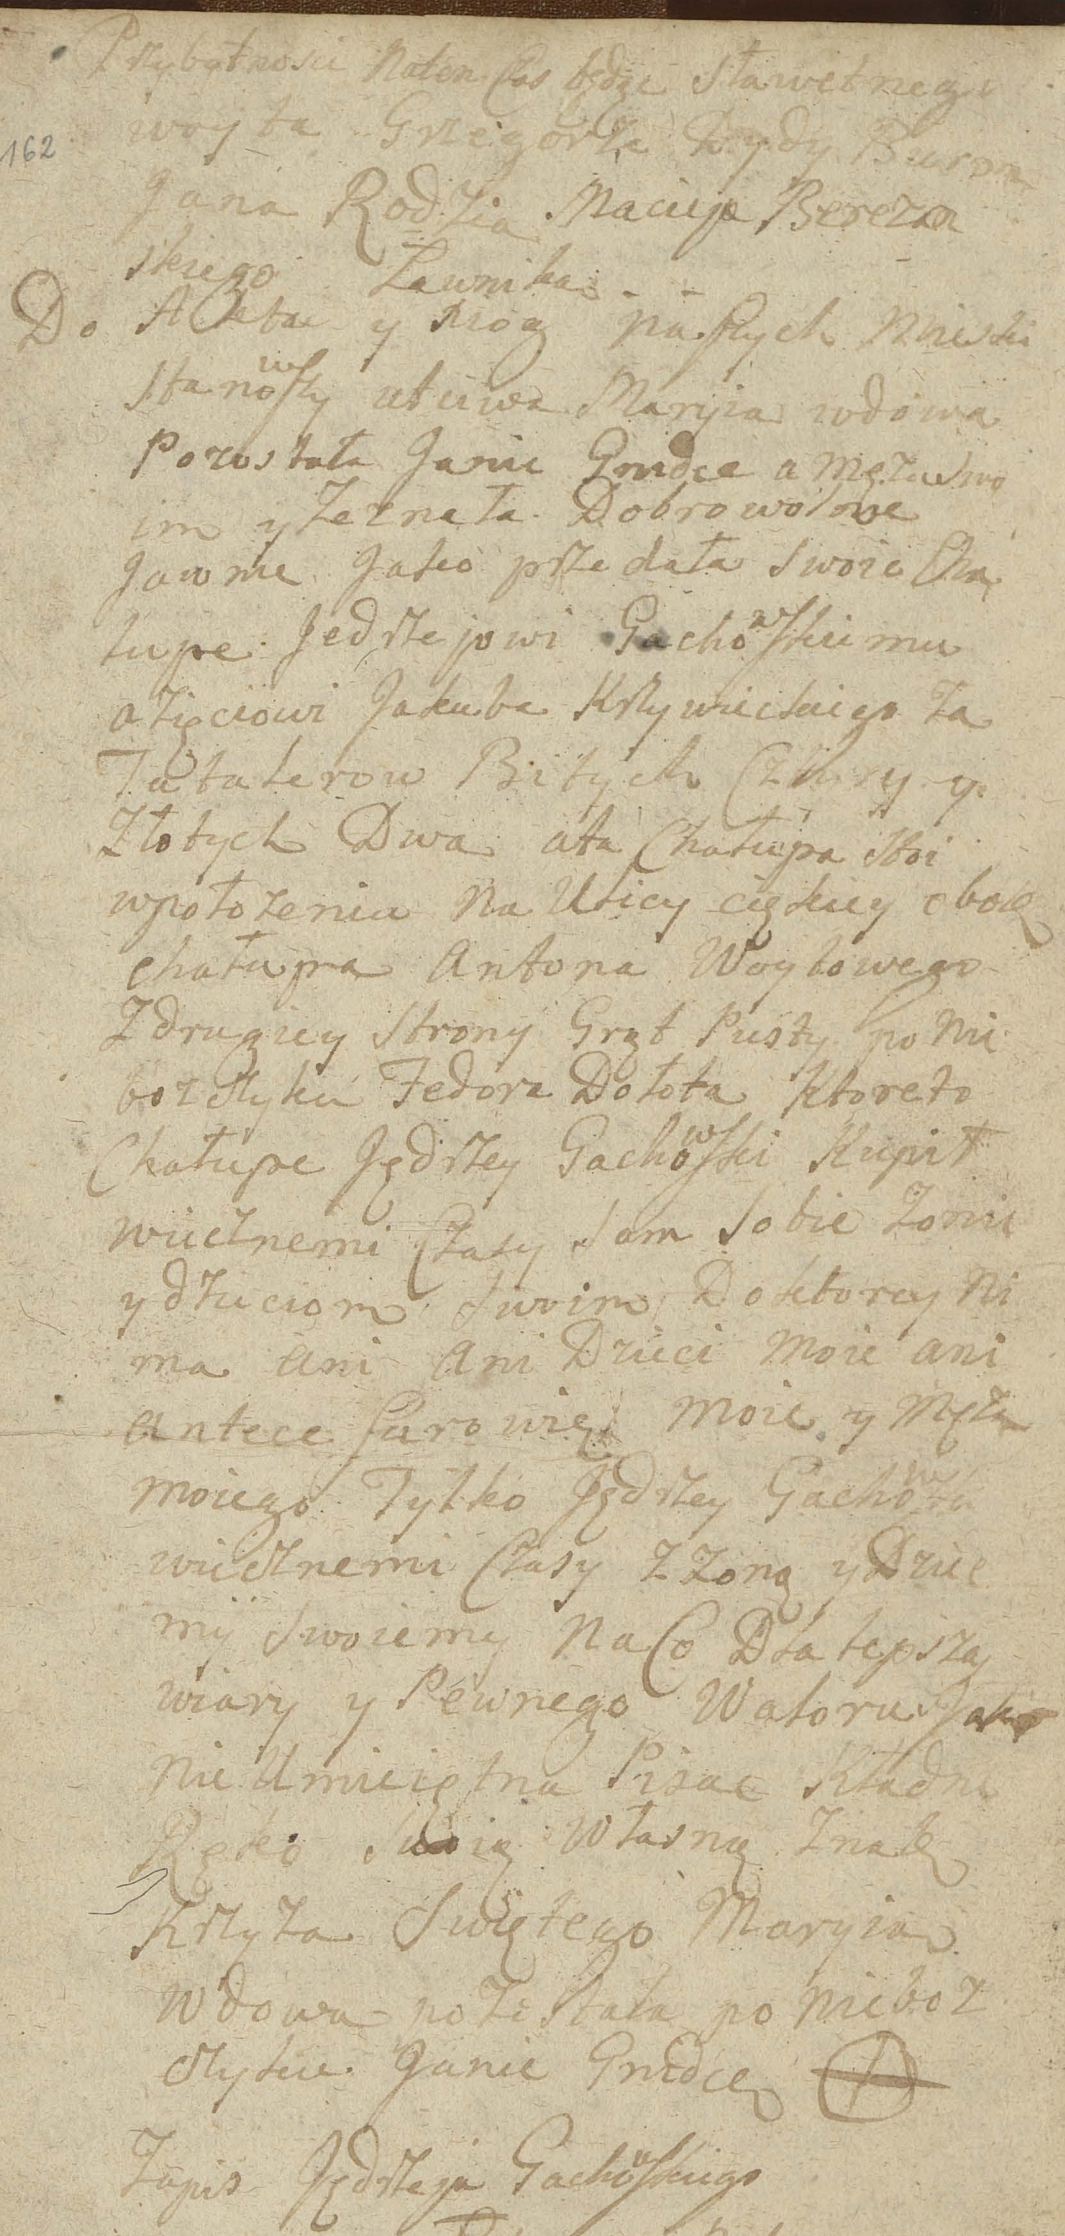 Przybytnosci Naten Czas będże Sławetnego
162
woyta Grzegorza Dydy Burm
Jana Rodzia Macieja Berezan
skiego Ławnika
Do Akta y Xiog naszych Mieski
stanowszy utciwa Maryia wdowa
Pozostała Janie Gnidce a męzu Swo
im y Zeznała Dobrowolnie
Jawnie Jako przedała Swoie Cha
łupe Jedrzejowi Gachowskiemu
a Zięciowi Jakuba Krzywieckiego Za
Talalerow Bitych Cztery y
Złotych Dwa ata Chałupa stoi
wpołozeniu Na Ulicy cięzkiey obok
chałupa Antona Woytowego
Zdrugiey Strony Grąt Pusty po Nie
bozczyku Fedora Dołota Ktoreto
Chałupe Jędrzey Gachowski Kupił
wiecznemi Czasy Sam Sobie Zonie
y dzieciom Swoim Doktorey Ni
ma ani Ani Dzieci moie ani
Antece Curowię moie y Męza
moiego Tylko Jędrzey Gachowski
wiecznemi Czasy z Zoną y Dzie
my Swoiemy Na Co Dla lepszey
wiary y Pewnego Waloru Jako
Nie Umieiętna Pisac Kładne
Ręko Swoię Własnę Znak
Krzyza Swiętego Maryia
Wdowa pozostała po nieboz
czyku Janie Gnidce
Zapis Jędrzeja Gachowskiego